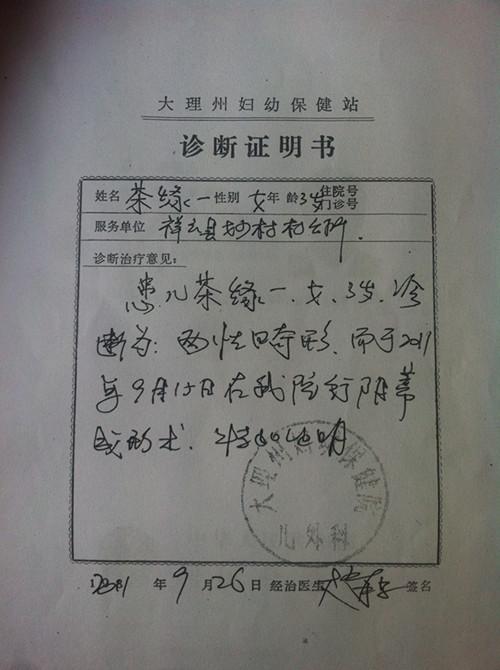 大理州妇幼保健站
诊断证明书
姓名 茶缘一 性别 女 年龄 3岁 住院号 门诊号
服务单位 祥云县 村村公所.
诊断治疗意见:
患儿茶缘一. 女. 3岁. 诊
断为: 两性畸形. 而于2011
年9月15日在我院行阴蒂
成形术. 特此证明
大理州妇幼保健院
儿外科
年9月26日 经治医生 签名